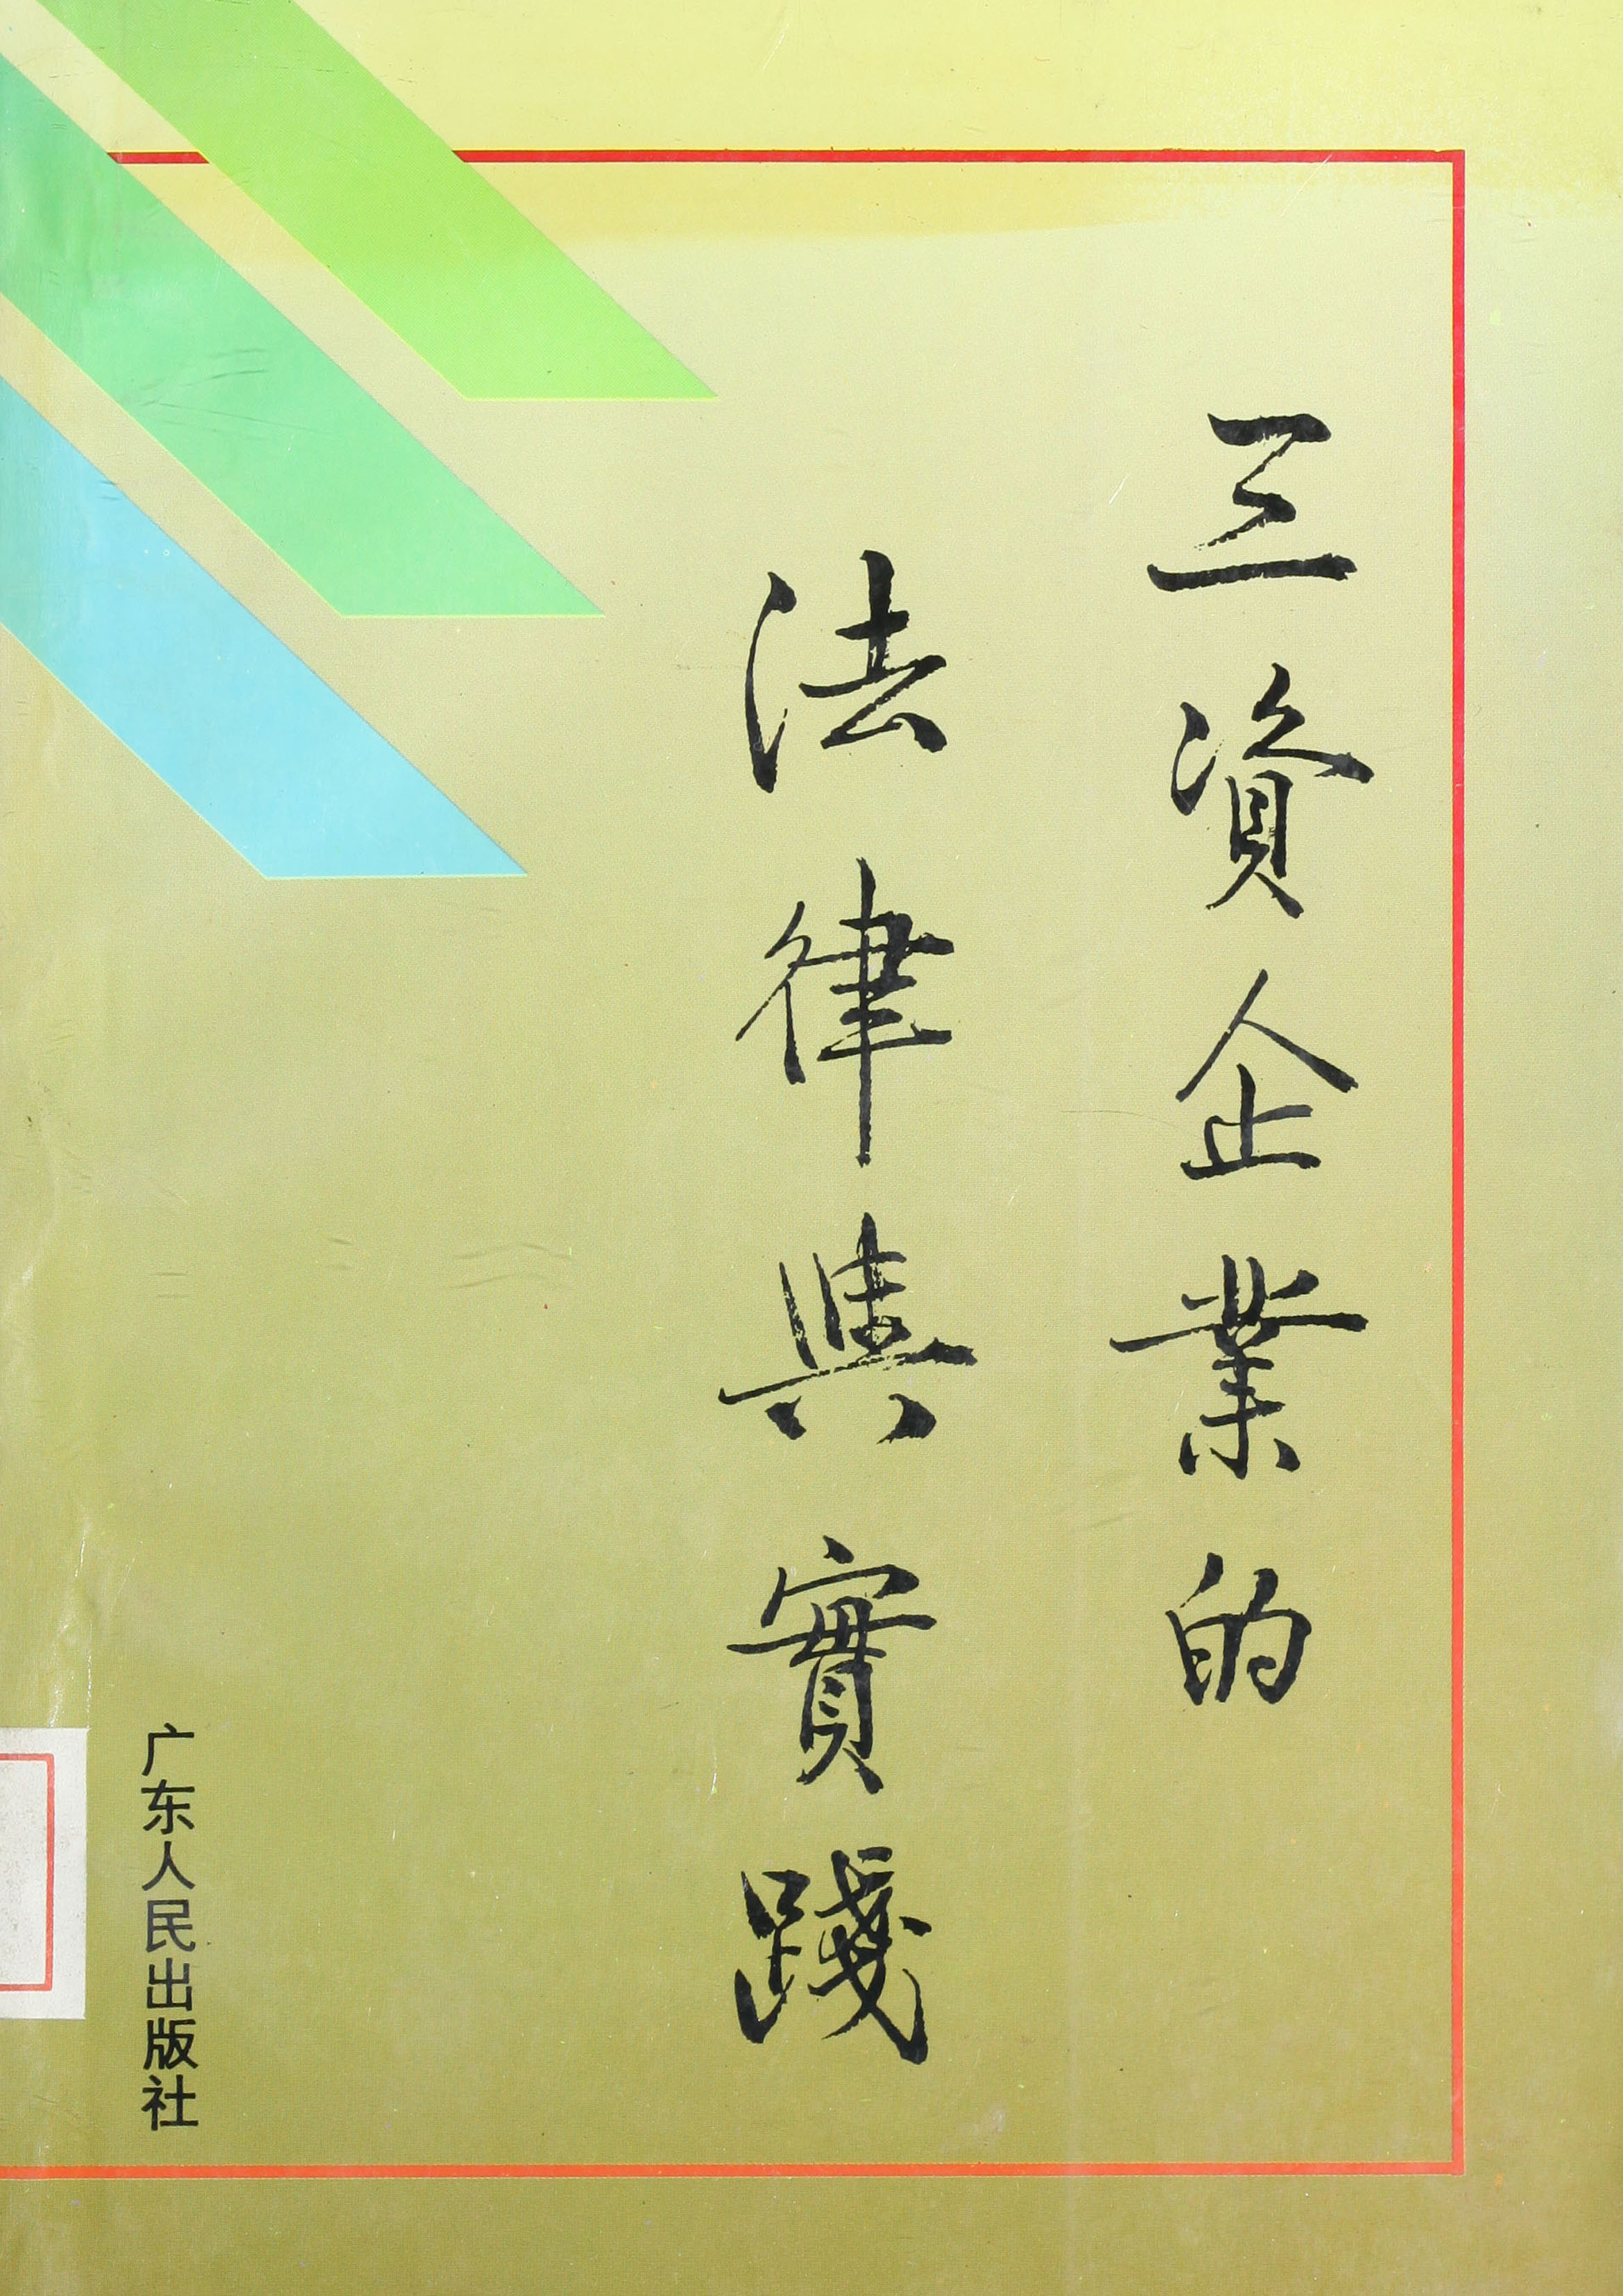 三資企業的
法律與實踐
广东人民出版社